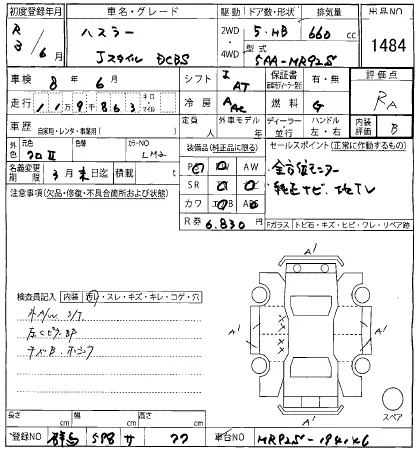 初度登録年月
車名・グレード
駆動
ドア数・形状
排気量
出品NO
R 3/6月
ハスラー
Jスタイル DCBS
2WD
4WD
5・HB
660 cc
型式
5AA-MR92S
1484
車検 8年 6月
シフト
I AT
保証書
有・無
評価点
RA
走行 119千863
キロ・マイル
冷房
AAC
燃料 G
車歴
自家用・レンタ・事業用( )
定員 人
外車モデル 年
ディーラー 並行
ハンドル 左・右
内装評価 B
色
元色 クロII
色替
カラーNO
装備品(純正品に限る)
セールスポイント(正常に作動するもの)
名義変更期限 3月末日迄
積載 t
AW
SR
カワ
全方位モニター
純正ナビ、
注意事項(欠品・修復・不具合箇所および状態)
R券 6,830円
Fガラス(トビ石・キズ・ヒビ・ワレ・リペア跡)
A'
A'
A'
A'
検査員記入(内装 ・スレ・キズ・キレ・コゲ・穴)
スペア
長さ cm
幅 cm
高さ cm
登録NO 群馬 598 サ 77
車台NO